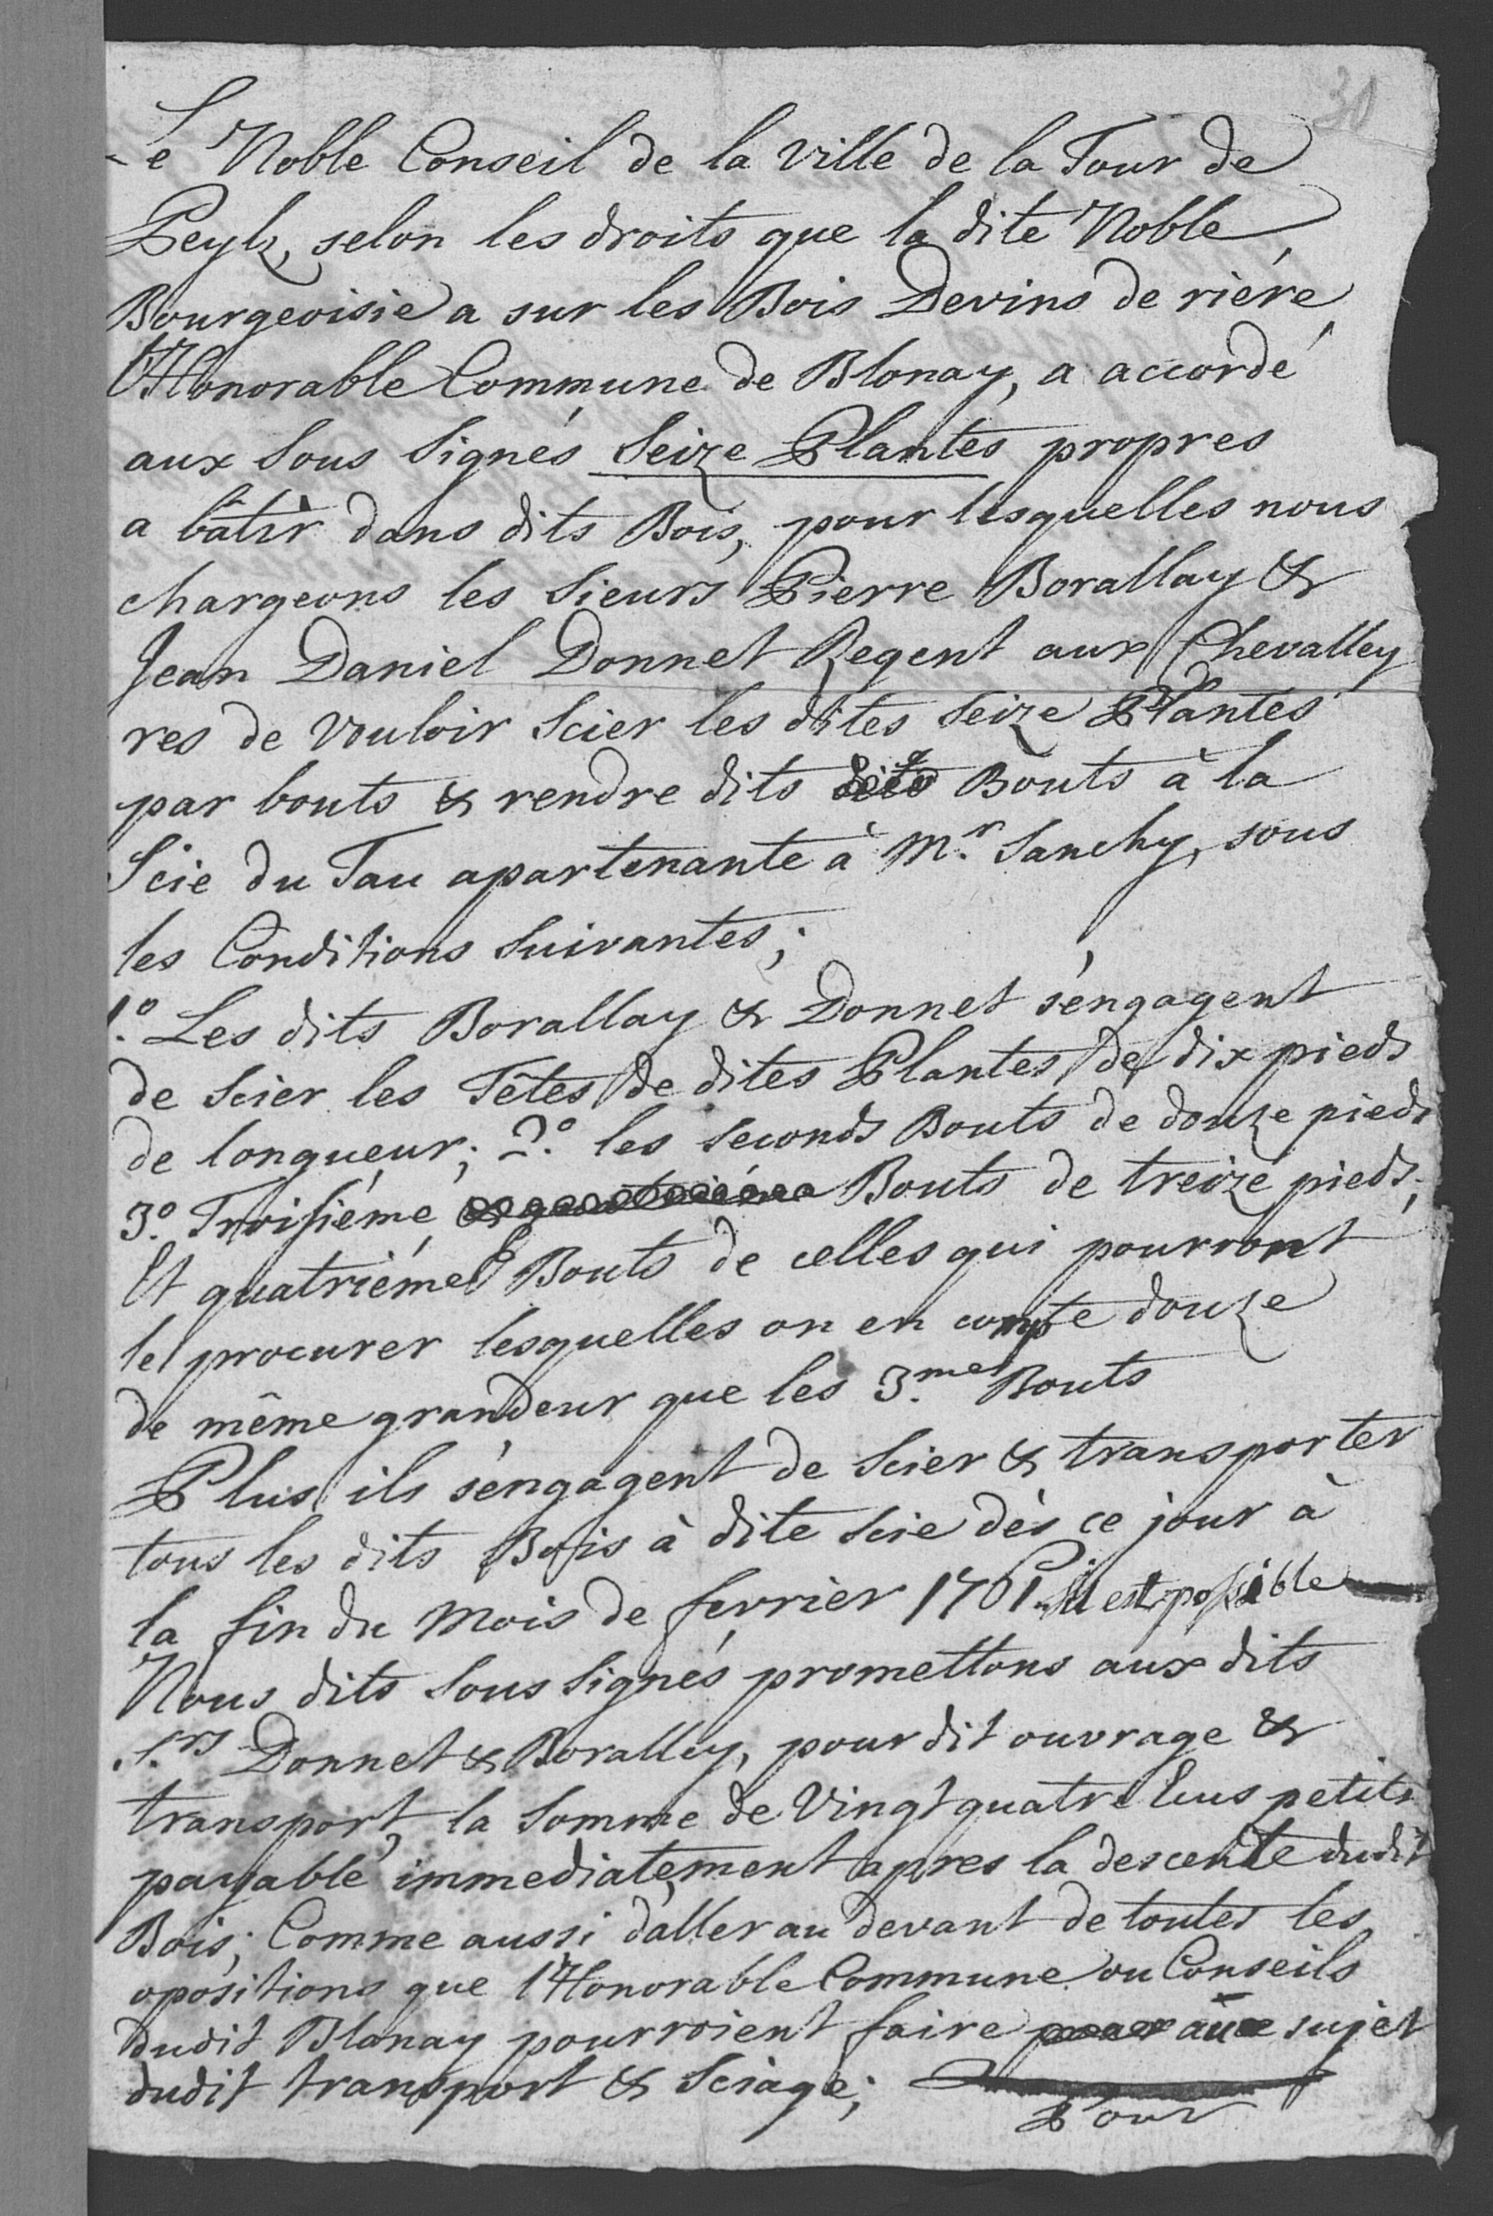 30
Le Noble Conseil de la Ville de la Tour de
Peylz, selon les droits que la dite Noble
Bourgeoisie a sur les Bois Devins de riére
l'Honorable Commune de Blonay, a accordé
aux Sous Signés Seize Plantes propres
a bâtir dans dits Bois, pour lesquelles nous
chargeons les Sieurs Pierre Borallay &
Jean Daniel Donnet Regent aux Chevalley
res de vouloir Scier les dites Seize Plantes
par bouts & rendre dits Bouts à la
Scie du Tau apartenante à Mr. Sanchy, sous
les Conditions Suivantes;
1.o Les dits Borallay & Donnet s'engagent
de Scier les Têtes de dites Plantes de dix pieds
de longueur; 2.o les Seconds Bouts de douze pieds
3.o Troisiéme Bouts de treize pieds;
Et quatriéme Bouts de celles qui pourront
le procurer lesquelles on en compte douze
de même grandeur que les 3.me Bouts
Plus ils s'engagent de Scier & transporter
tous les dits Bois à dite Scie dès ce jour à
la fin du Mois de fevrier 1761. s'il est possible
Nous dits Sous Signés promettons aux dits
S.rs Donnet & Boralley, pour dit ouvrage &
transport, la Somme de Vingt quatre Ecus petits
payable immediatement apres la descente dudit
Bois; Comme aussi d'aller au devant de toutes les
opositions que l'Honorable Commune ou Conseils
dudit Blonay pourroient faire au sujet
dudit transport & Sciage;
Pour